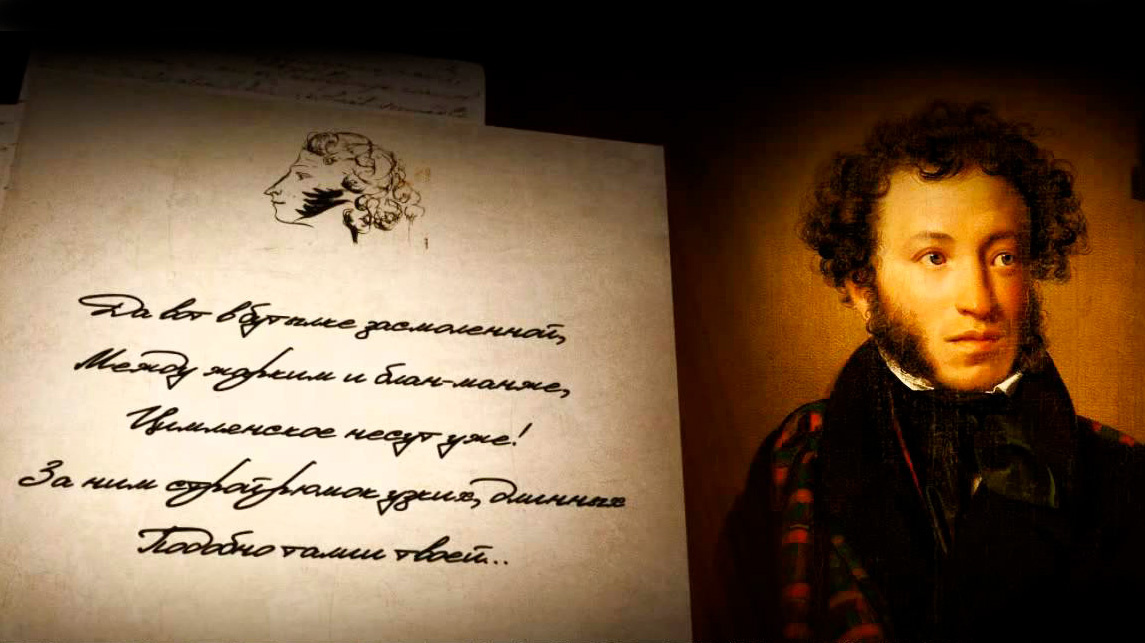 Да вот в бутылке засмоленной,
Между жарким и блан-манже,
Цимлянское несут уже!
За ним строй рюмок узких, длинных
Подобно талии твоей..